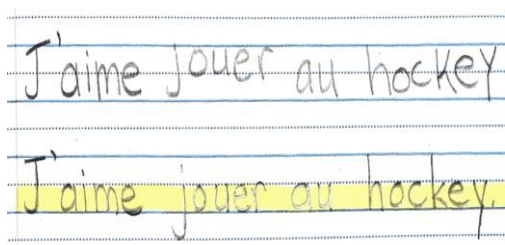 J'aime jouer au hockey
J'aime jouer au hockey.